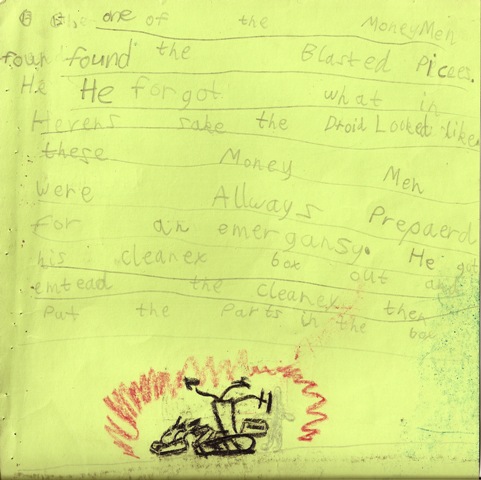 one of the MoneyMen
found found the Blasted Pices.
He He forgot what in
Hevens sake the Droid Looked like
these Money Men
were Allways Prepaerd
for an emergansy. He got
his cleanex box out and
emtead the cleanex. then
Put the Parts in the box